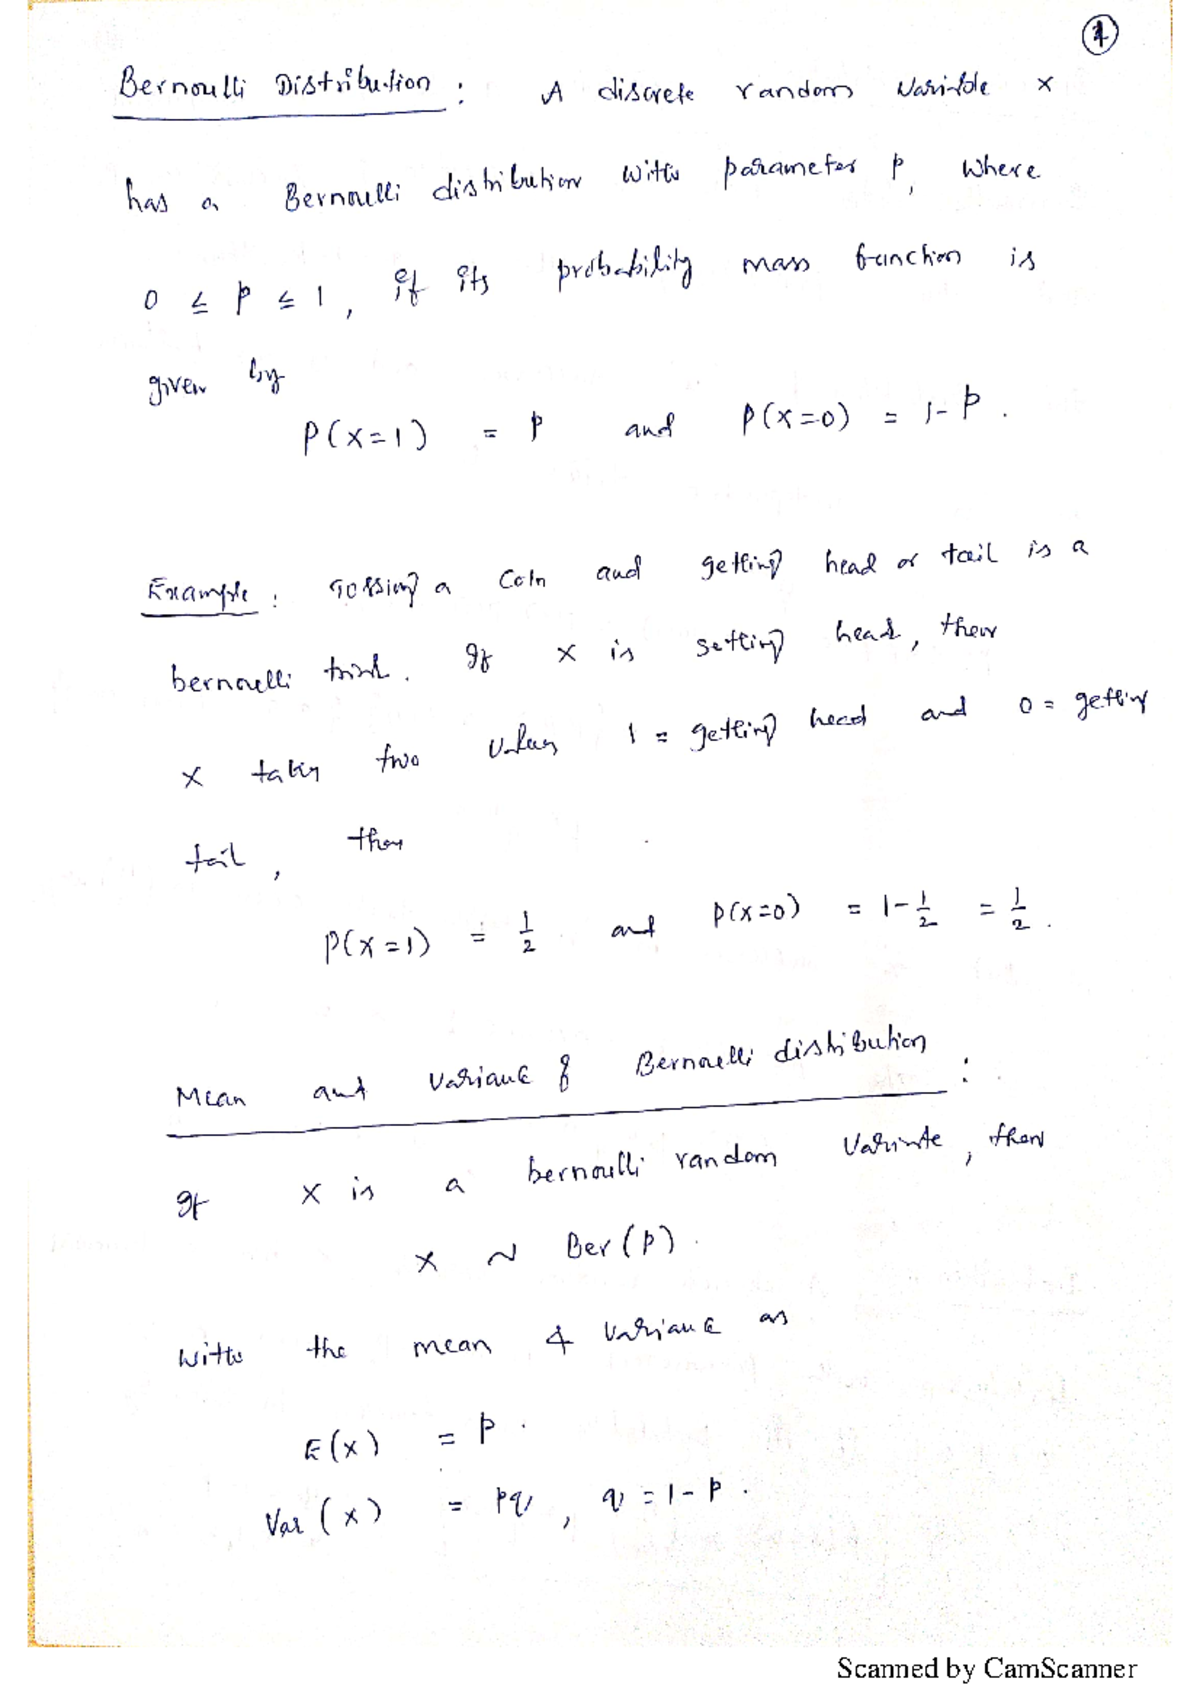 1
Bernoulli Distribution : A discrete random variable X
has a Bernoulli distribution with parameter p, where
0 ≤ p ≤ 1, if its probability mass function is
given by
P(X=1) = p and P(X=0) = 1-p.
Example : Tossing a Coin and getting head or tail is a
bernoulli trial. If X is getting head, then
X taking two values 1 = getting head and 0 = getting
tail, then
P(X=1) = 1/2 and P(X=0) = 1-1/2 = 1/2.
Mean and variance of Bernoulli distribution :
If X is a bernoulli random variate, then
X ~ Ber(p).
with the mean & variance as
E(X) = p.
Var(X) = pq, q = 1-p.
Scanned by CamScanner